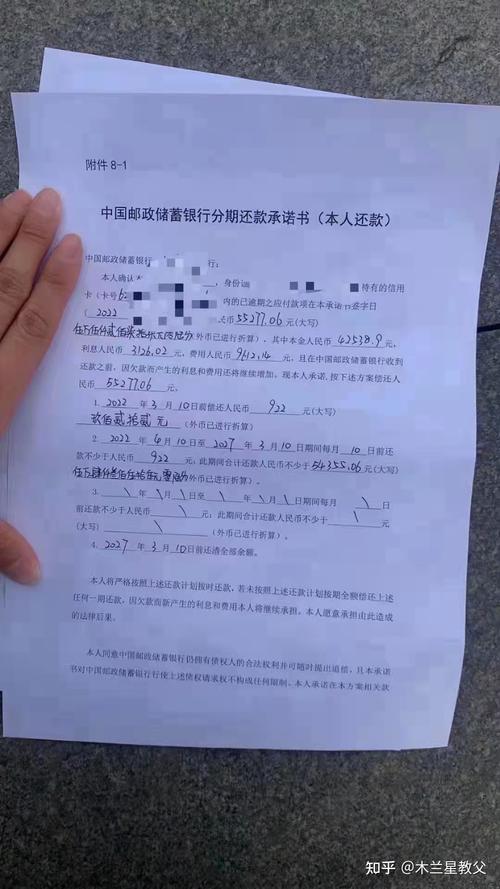 附件 8-1
中国邮政储蓄银行分期还款承诺书（本人还款）
中国邮政储蓄银行 行：
本人确认 身份证 持有的信用
卡（卡号6 内的已逾期之应付款项在本承诺书签字日
（2022 民币 55277.06 元(大写)
(外币已进行折算)。其中本金人民币 42538.9 元，
利息人民币 3126.02 元，费用人民币 9612.14 元，且在中国邮政储蓄银行收到
还款之前，因欠款而产生的利息和费用还将继续增加。现本人承诺，按下述方案偿还人
民币 55277.06 元。
1. 2022 年 3 月 10 日前偿还人民币 922 元(大写)
玖佰贰拾贰元 (外币已进行折算)。
2. 2022 年 4 月 10 日至 2027 年 3 月 10 日期间每月 10 日前还
款不少于人民币 922 元；此期间合计还款人民币不少于 54355.06 元(大写)
(外币已进行折算)。
3. \ 年 \ 月 \ 日至 \ 年 \ 月 \ 日期间每月 \ 日
前还款不少于人民币 \ 元；此期间合计还款人民币不少于 \ 元
(大写) \ (外币已进行折算)。
4. 2027 年 3 月 10 日前还清全部余额。
本人将严格按照上述还款计划按时还款，若未按照上述还款计划按期全额偿还上述
任何一期还款，因欠款而新产生的利息和费用本人将继续承担。本人愿意承担由此造成
的法律后果。
本人同意中国邮政储蓄银行仍拥有债权人的合法权利并可随时提出追偿，且本承诺
书对中国邮政储蓄银行行使上述债权请求权不构成任何限制。本人承诺在本方案相关款
知乎 @木兰星教父